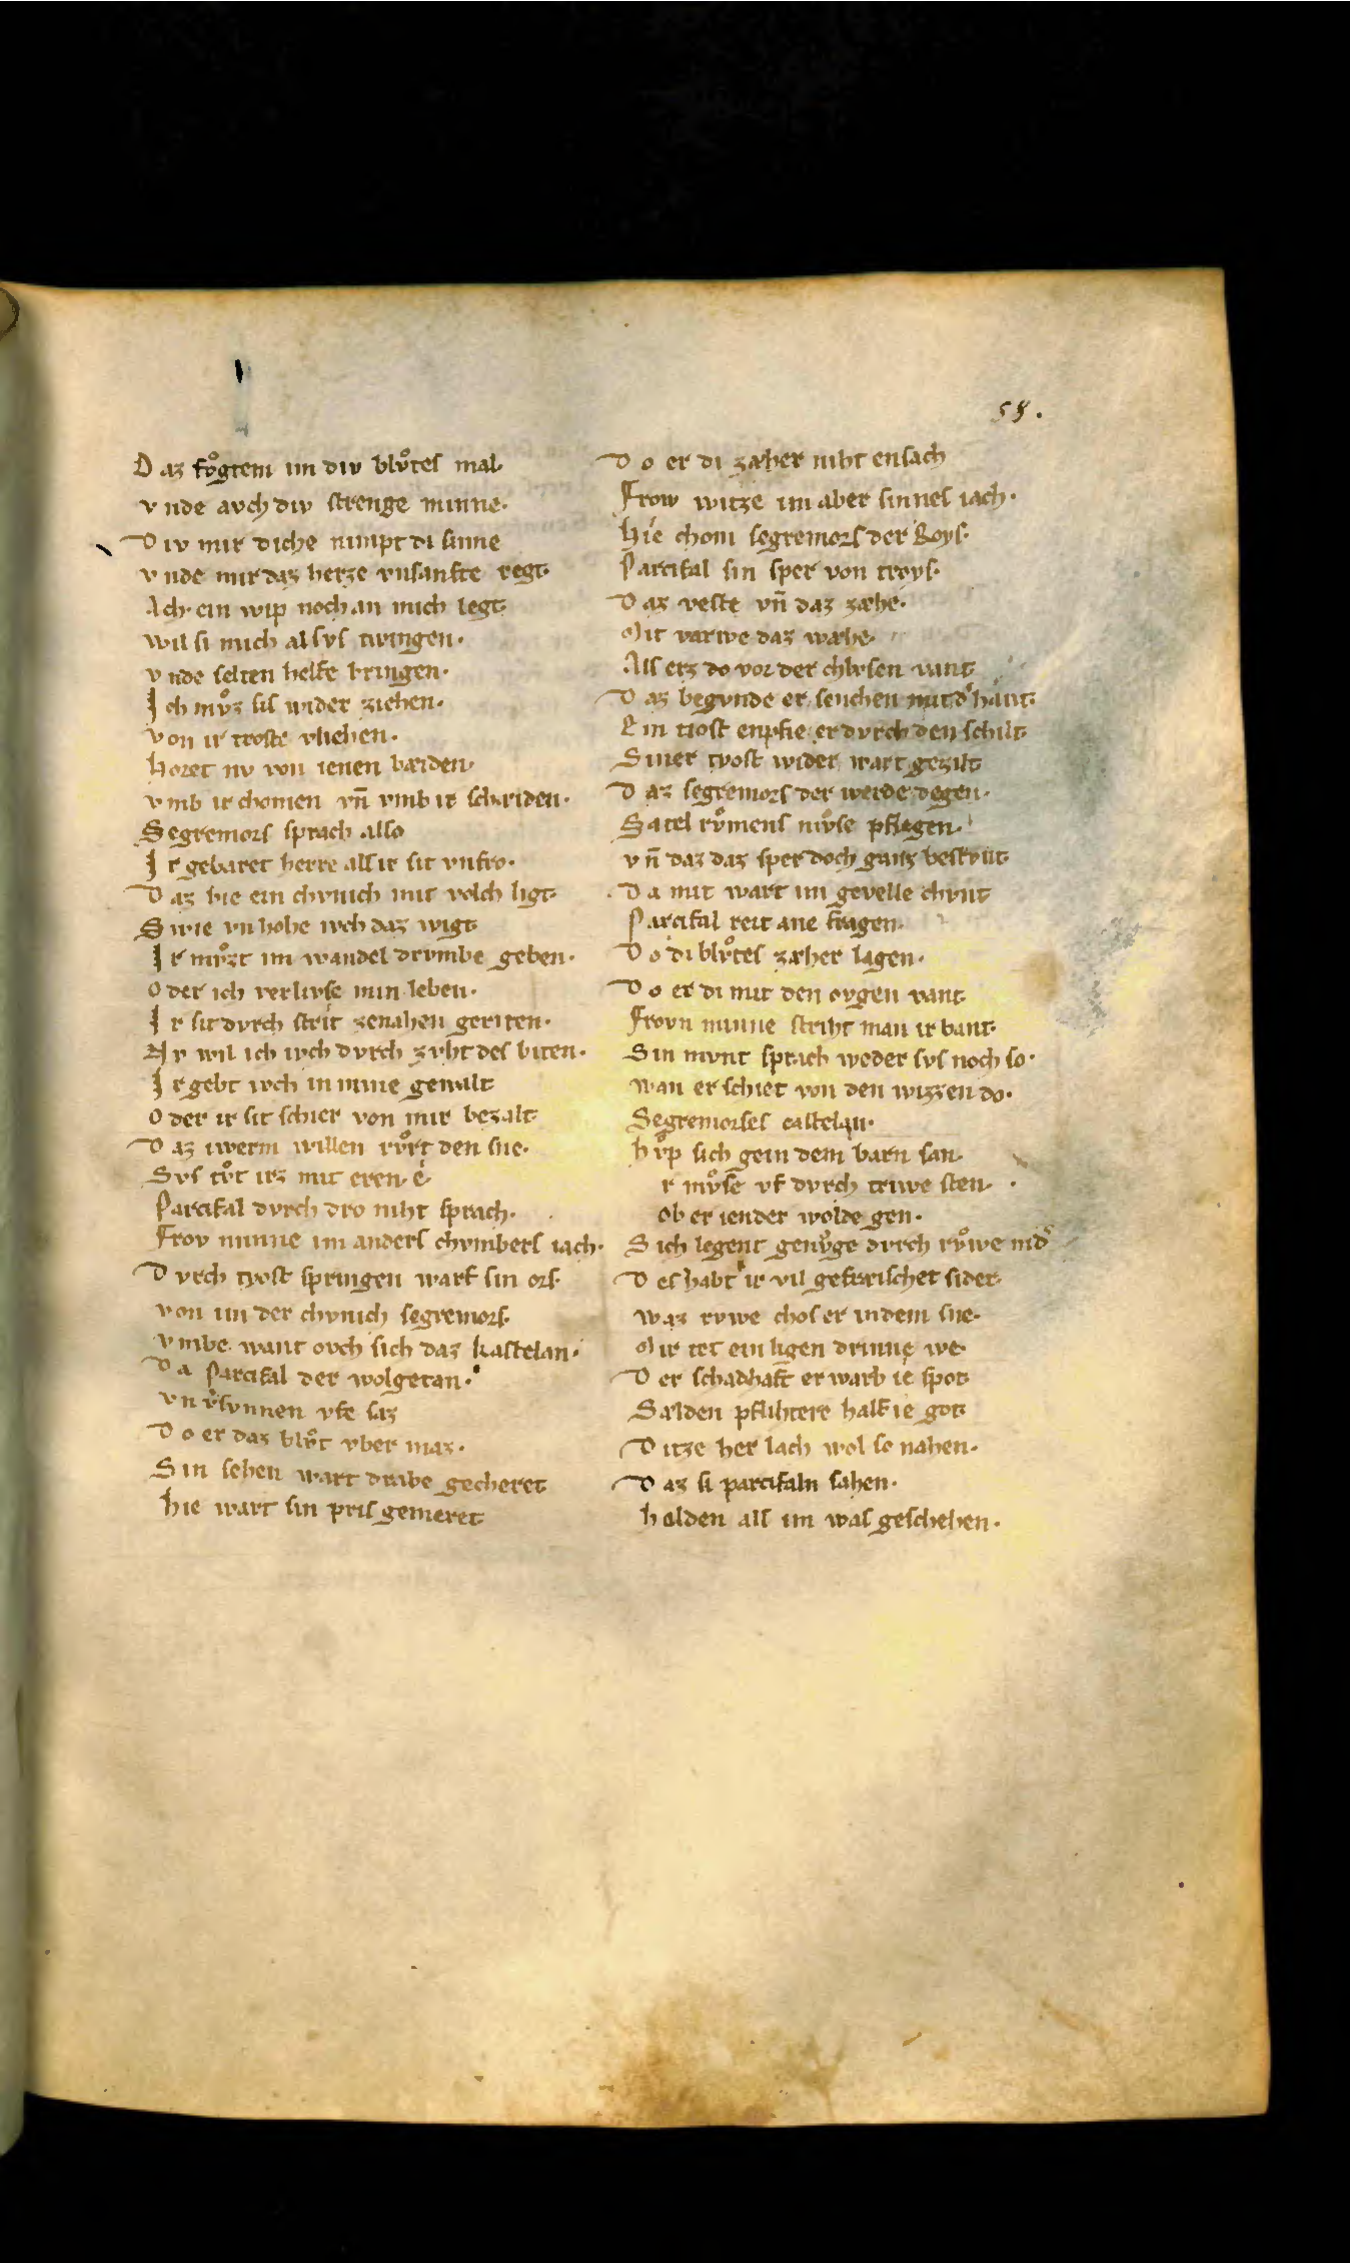 58.
D az fvͦgtem im div blvͦtes mal·
v nde avch div strenge minne·
D iv mir diche nimpt di sinne
v nde mir daz herze vnsanfte regt·
Ach ein wip noch an mich legt·
wil si mich al svs twingen·
v nde selten helfe bringen·
I ch mvͦz sis wider ziehen·
von ir troste vliehen·
horet nv von ienen bæiden·
v mb ir chomen vn̄ vmb ir schæiden·
Segremors sprach also
I r gebaret herre als ir sit vnfro·
D az hie ein chvnich mit volch ligt·
S wie vnhohe ivch daz wigt
I r mvͦzt im wandel drvmbe geben·
o der ich verlivse min leben·
I r sit dvrch strit zenahen geriten·
N v wil ich ivch dvrch zvht des biten·
I r gebt ivch in mine gewalt
o der ir sit schier von mir bezalt·
D az iwerm willen rvͦrt den sne·
Svs tvͦt irz mit eren é·
Parcifal dvrch dro niht sprach·
Frov minne im anders chvmbers iach·
D vrch tyost springen warf sin ors·
von im der chvnich segremors·
v mbe want ovch sich daz kastelan·
D a parcifal der wolgetan·
vn v̓svnnen vfe saz
D o er daz blvͦt vber maz·
S in sehen wart drabe gecheret
hie wart sin pris gemeret·
D o er di zæher niht ensach
Frow witze im aber sinnes iach·
hie chom segremors der Roys·
Parcifal sin sper von troys·
D az veste vn̄ daz zæhe·
Mit varwe daz wæhe·
Als erz do vor der chlvsen vant
D az begvnde er senchen mit d̓ hant·
E in tiost enpfie er dvrch den schilt
Siner tyost wider wart gezilt
D az segremors der werde degen·
Satel rvͦmens mvͦse pflegen·
vn̄ daz daz sper doch ganz bestvnt·
D a mit wart im gevelle chvnt
Parcifal reit ane fragen·
D o di blvͦtes zæher lagen·
D o er di mit den ovgen vant·
Frovn minne striht man ir bant·
Sin mvnt sprach weder svs noch so·
wan er schiet von den wizzen do·
Segremorses castelan·
hvͦp sich gein dem barn san·
r mvͦse vf dvrch triwe sten·
ob er iender wolde gen·
S ich legent genvͦge dvrch rvͦwe nid̓
D es habt ir vil gefræischet sider·
waz rvwe chos er in dem sne·
Mir tet ein ligen drinne we·
D er schadhaft erwarb ie spot·
Sælden pflihtere half ie got·
D itze her lach wol so nahen·
D az si parcifaln sahen·
h alden als im was geschehen·